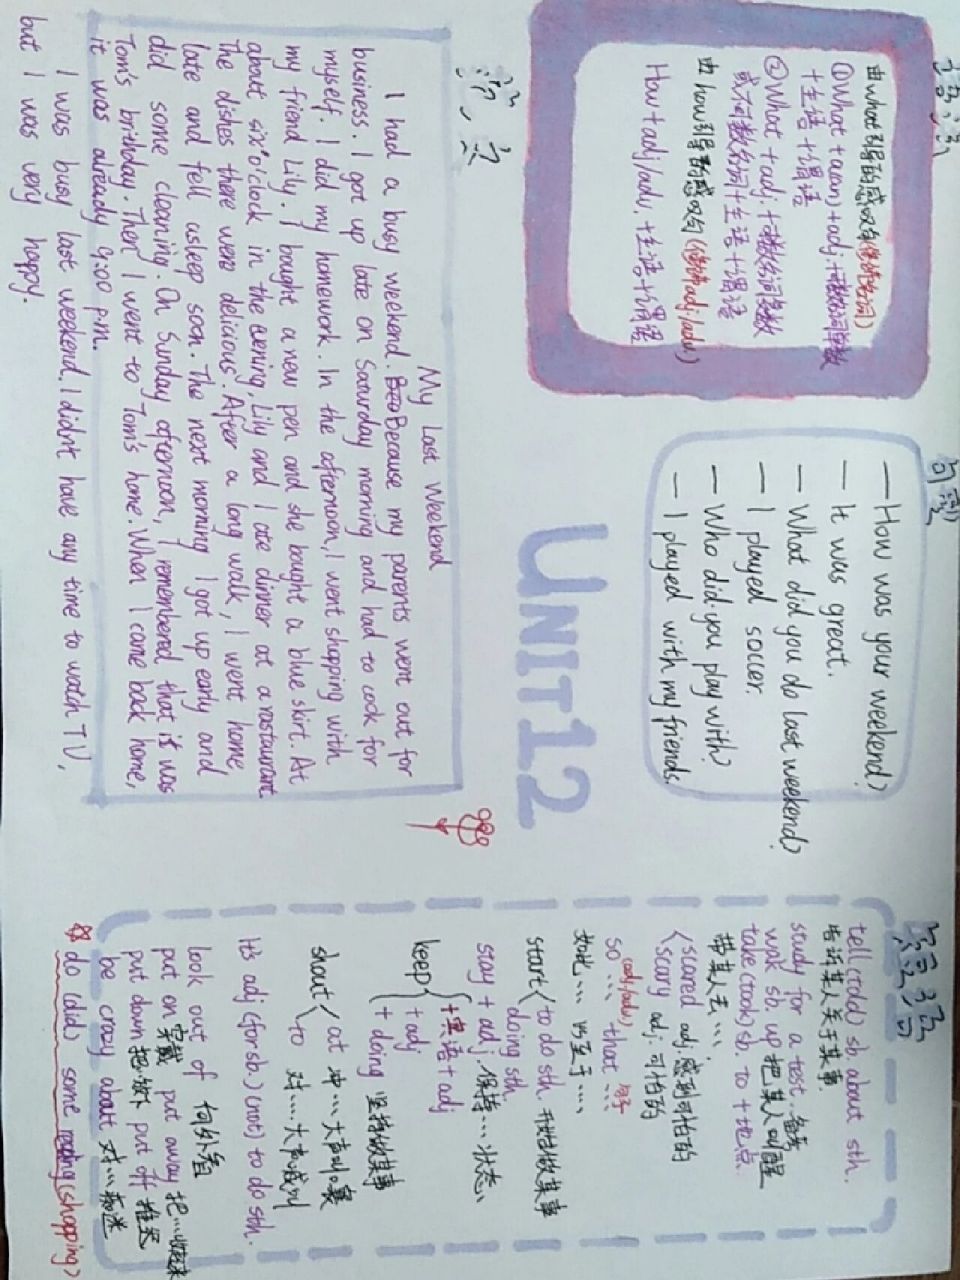 语法
由what引导的感叹句(修饰名词)
①What+a(an)+adj.+可数名词单数
+主语+谓语
②What+adj.+可数名词复数
或不可数名词+主语+谓语
由how引导的感叹句(修饰adj/adv)
How+adj/adv.+主语+谓语
句型
—How was your weekend?
—It was great.
—What did you do last weekend?
—I played soccer.
—Who did you play with?
—I played with my friends.
UNIT12
My Last Weekend
I had a busy weekend. Because my parents went out for
business. I got up late on Saturday morning and had to cook for
myself. I did my homework. In the afternoon, I went shopping with
my friend Lily. I bought a new pen and she bought a blue skirt. At
about six o'clock in the evening, Lily and I ate dinner at a rastaurant.
The dishes there were delicious. After a long walk, I went home,
late and fell asleep soon. The next morning I got up early and
did some cleaning. On Sunday afternoon, I remembered that it was
Tom's birthday. Then I went to Tom's home. When I came back home,
it was already 9:00 p.m.
I was busy last weekend. I didn't have any time to watch TV,
but I was very happy.
短语
tell(told) sb. about sth.
告诉某人关于某事
study for a test 备考
wak sb. up 把某人叫醒
take(took) sb. to +地点
带某人去……
scared adj.感到可怕的
scary adj.可怕的
so…(adj/adv) that…句子
如此…以至于…
start to do sth. 开始做某事
doing sth.
stay + adj.保持…状态
keep +宾语+adj
+adj
+ doing 坚持做某事
shout at 冲…大声叫嚷
to 对……大声喊叫
It's adj (for sb.) (not) to do sth.
look out of 向外看
put on 穿戴 put away 把…收起来
put down 把…放下 put off 推迟
be crazy about 对…痴迷
do (did) some reading(shopping)